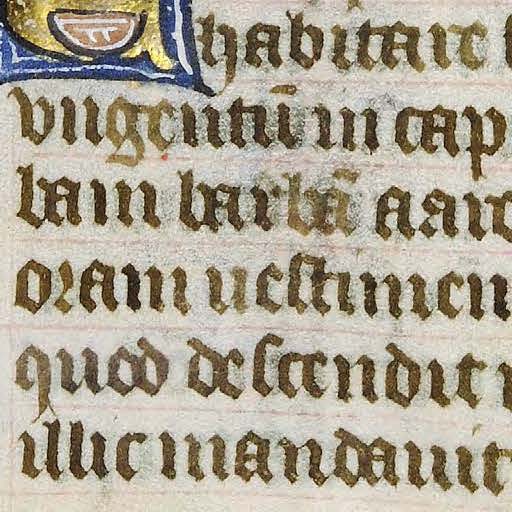 habitare
vngentū in cap
bam in barbā aar
oram uestimen
quod descendit
illic mandauit